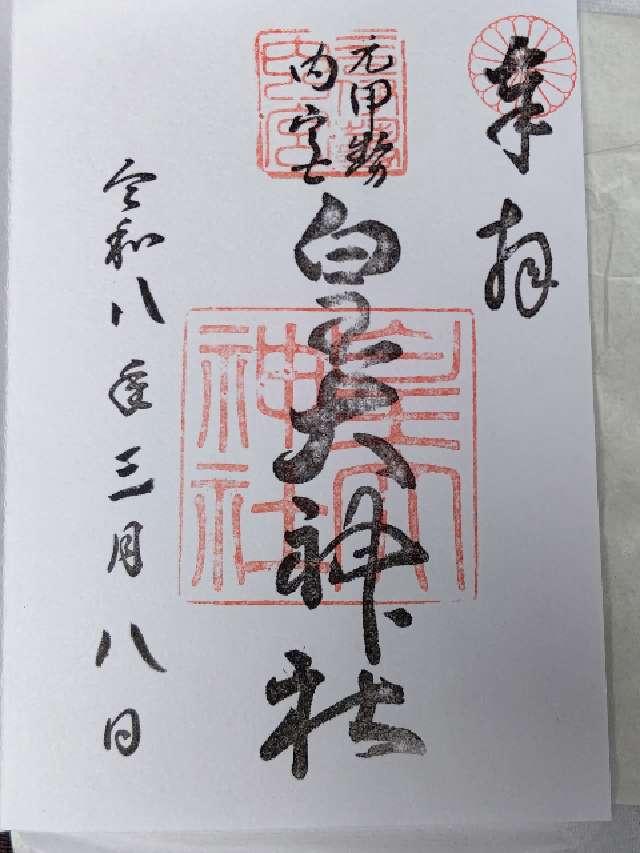 奉拝
元伊勢
内宮
皇大神社
皇大
神社
元伊勢
内宮
令和八年三月八日